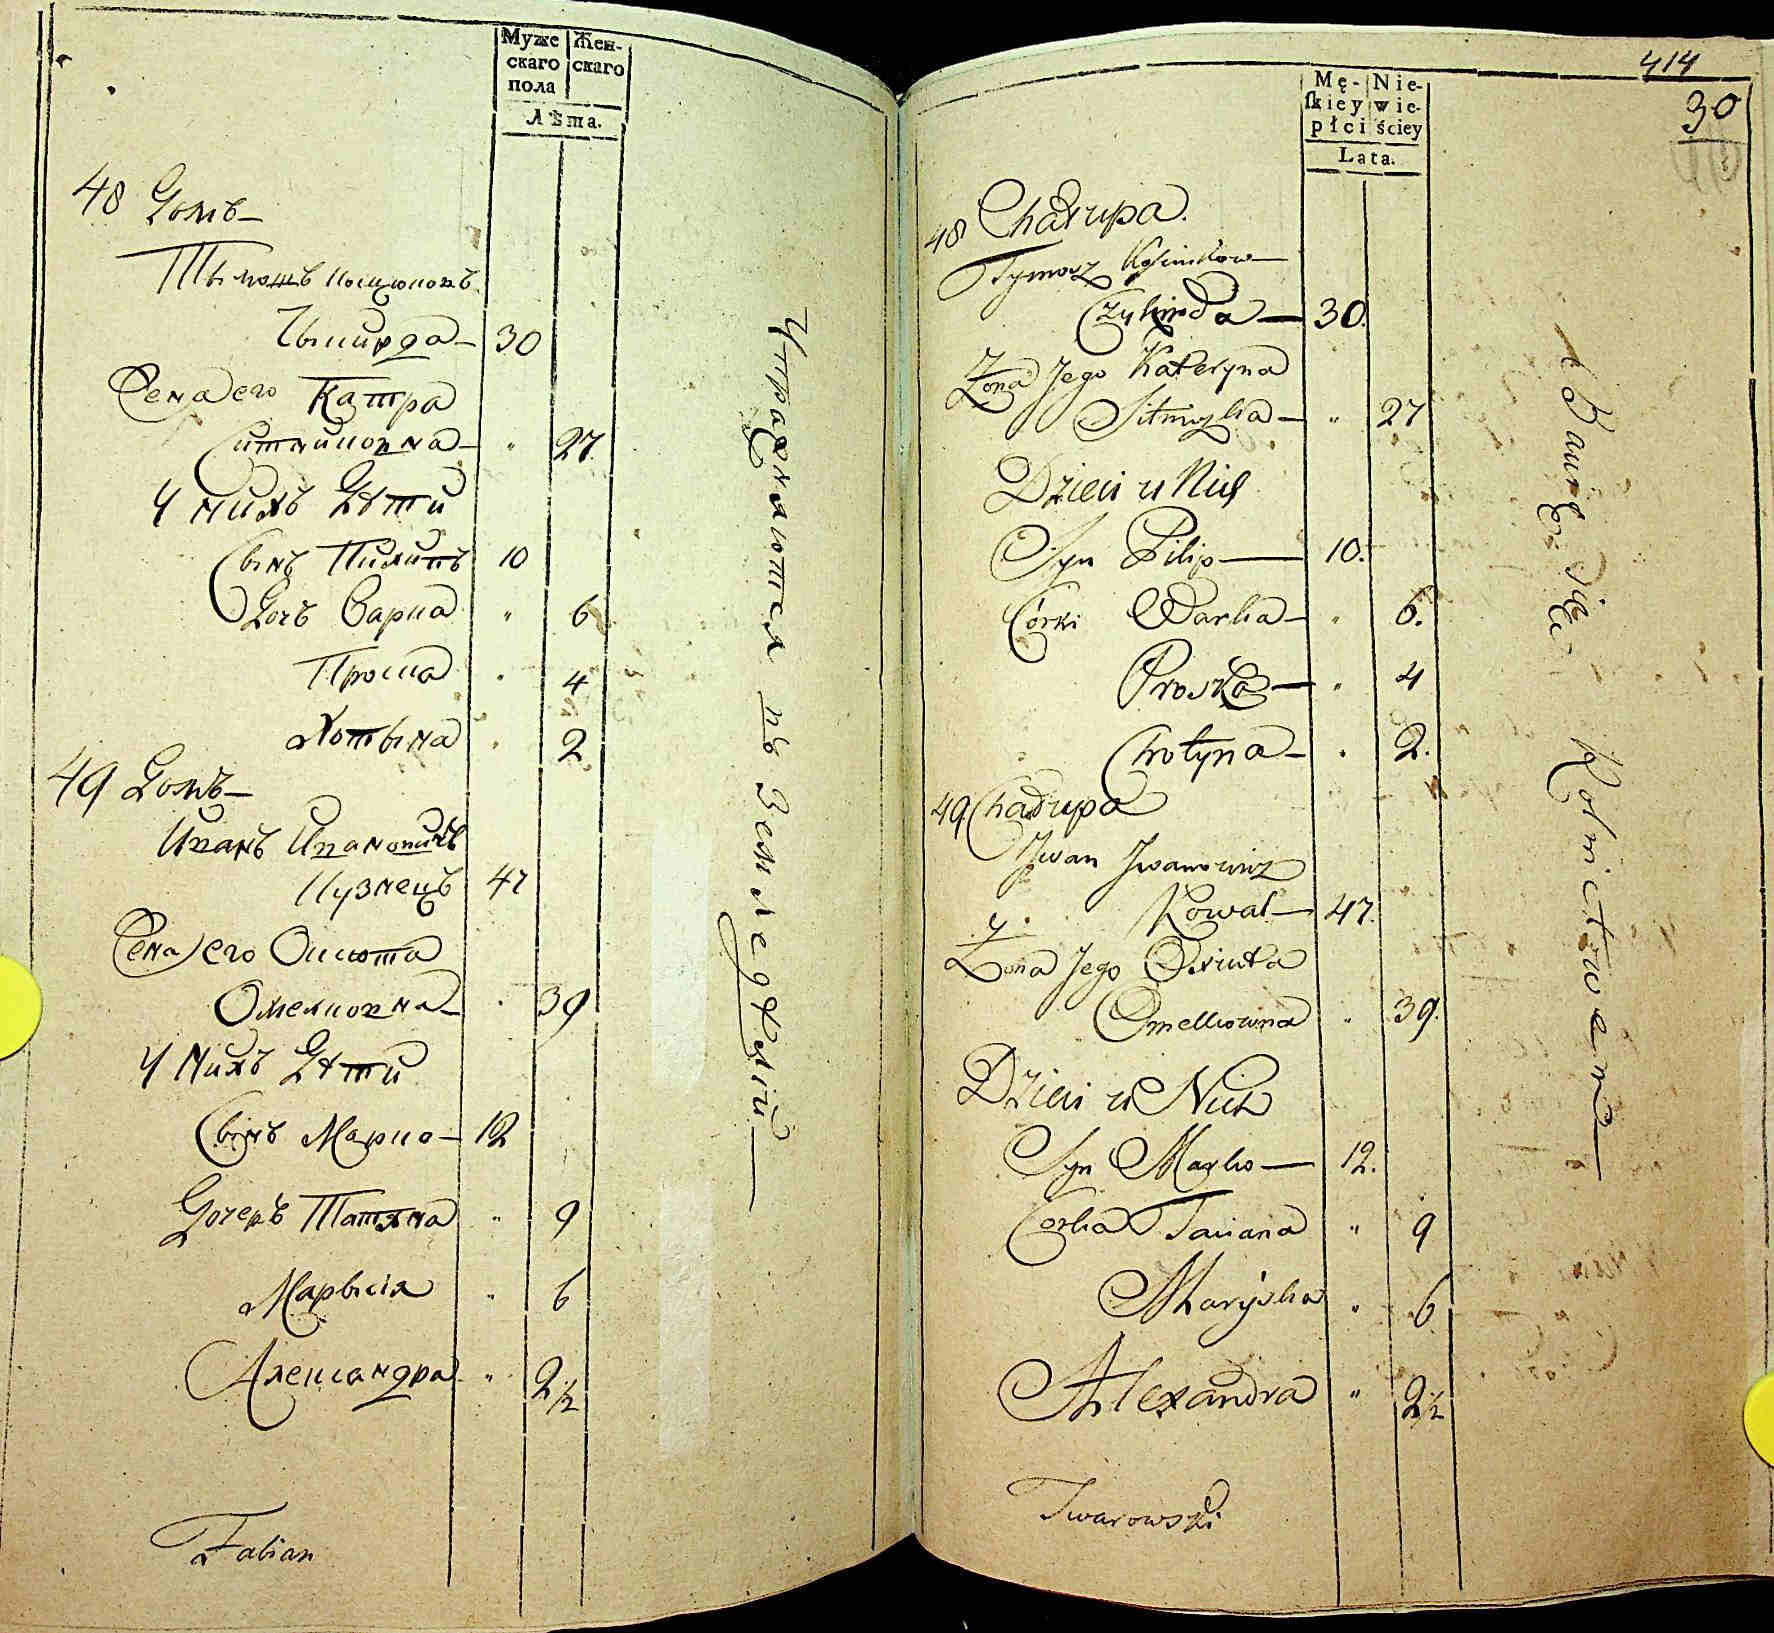 Муже
скаго
пола
Жен-
скаго
Лѣта.
48 Домъ
Тымошъ Косцюковъ
Чыкирда 30
Жена его Катра
Ситниковна „ 27
У нихъ Дѣти
Сынъ Пилипъ 10
Дочъ Варка „ 6
Проска „ 4
Хотына „ 2
49 Домъ
Иванъ Ивановичъ
Кузнецъ 47
Жена его Оксюта
Омелковна „ 39
У Нихъ Дѣти
Сынъ Марко 12
Дочеръ Татяна „ 9
Марыся „ 6
Александра „ 2 1/2
Fabian
Упражняются въ Земледѣлій
414
30
Mę-
ſkiey
płci
Nie-
wie-
ściey
Lata.
48 Chałupa.
Tymosz
Czykirda 30.
Żona Jego Kateryna
Sitnizka „ 27
Dzieci u Nich
Syn Pilip 10.
Córki Warka „ 6.
Proszka „ 4
Chotyna „ 2.
49 Chałupa
Jwan Jwanowicz
Kowal 47.
Żona Jego Oxiuta
Omelkowna „ 39.
Dzieci u Nich
Syn Marko 12.
Corka Taciana „ 9
Maryśka „ 6
Alexandra „ 2 1/2
Twarowski
Bawią się Rolnictwem